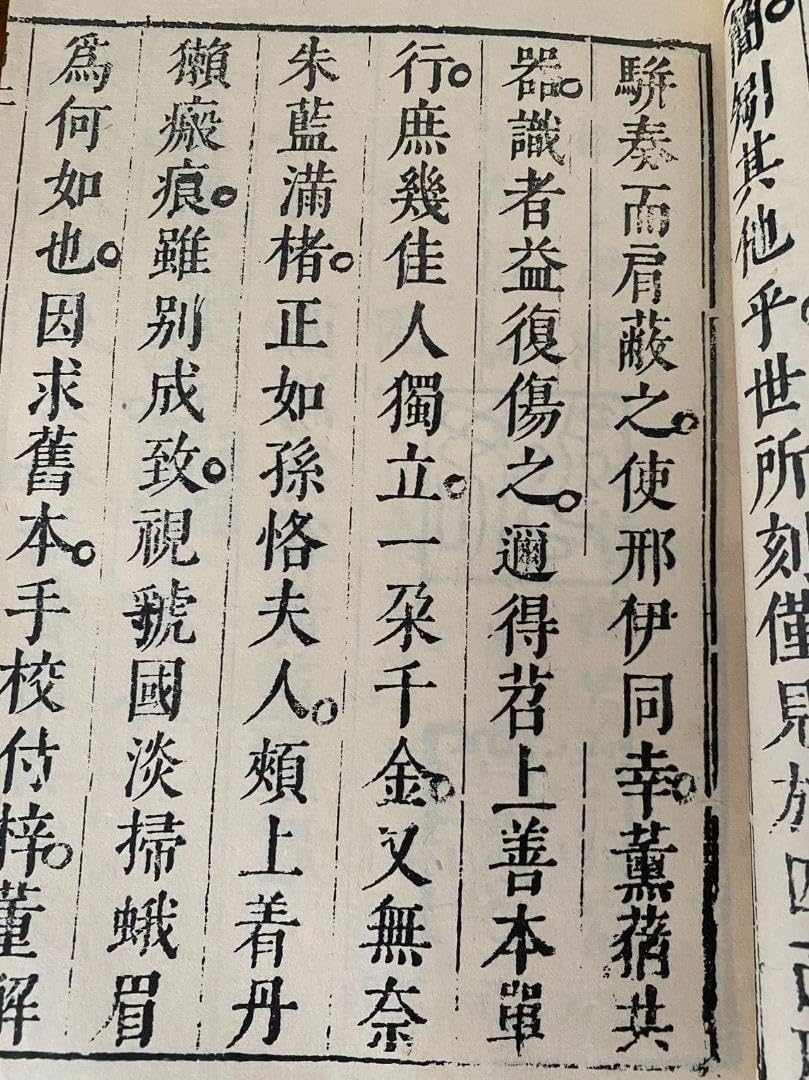 簡娟其他乎世所刻僅見於四
駢奏而肩蔽之。使邢伊同幸。薰蕕共
器。識者益復傷之。邇得苕上善本單
行。庶幾佳人獨立。一朶千金。又無奈
朱藍滿楮。正如孫恪夫人。頰上着丹
獺瘢痕。雖别成致。視虢國淡掃蛾眉
爲何如也。因求舊本。手校付梓。董解